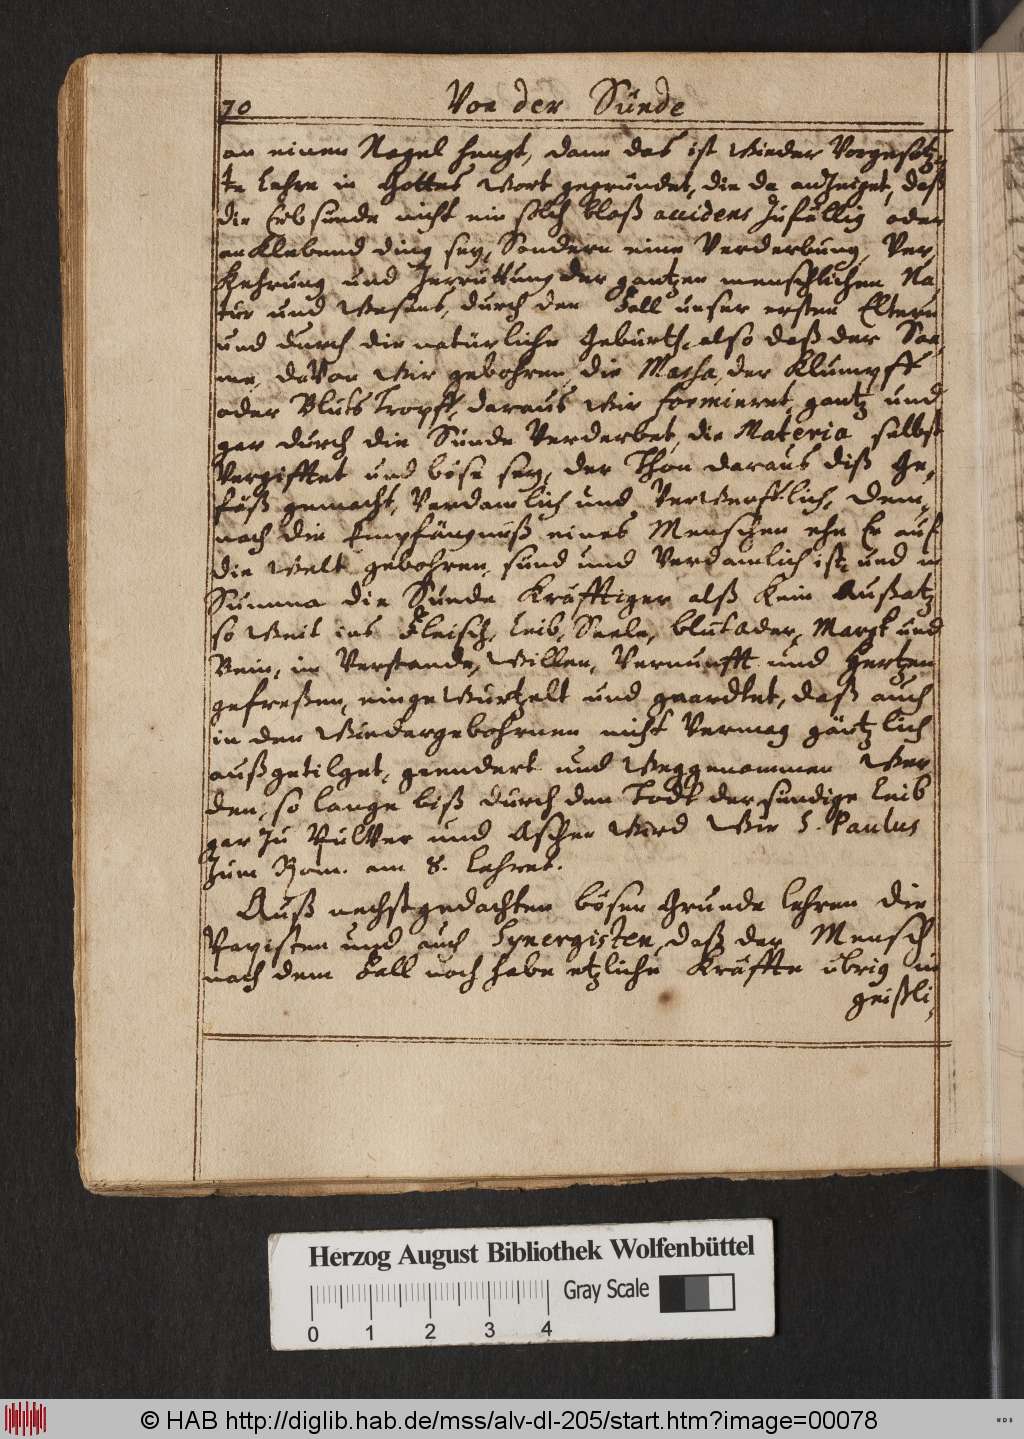 70 Von der Sünde
an einen Nagel hengt, dann das ist wieder Vorgesetz-
te Lehre in Gottes Wort gegründet, die da anzeiget, daß
die Erbsunde nicht ein solch bloß accidens Zufällig oder
anklebend ding sey, Sondern eine Verderbung, Ver-
kehrung und Zerruttung der gantzen menschlichen Na
tur und Wesens, durch den Fall unser ersten Eltern
und durch die natürliche Geburth, also daß der Saa-
me, davon wir gebohren, die Massa, der Klumpff
oder Bluts Tropff, daraus wir formieret, gantz und
gar durch die Sünde Verderbet, die Materia selbst
Vergifftet und böse sey, der Thon daraus diß Ge-
fäß gemacht, Verdamlich und Verwerfflich, dem-
nach die Empfängnüß eines Menschen ehe Er auf
die Welt gebohren, sünd und Verdamlich ist, und in
Summa die Sünde Kräfftiger alß kein Außatz
so weit ins Fleisch, Leib, Seele, blutader, Margk und
Bein, im Verstande, Willen, Vernunfft und Hertzen
gefreßen, eingewurtzelt und geardtet, daß auch
in den Wiedergebohrnen nicht Vermag gäntzlich
außgetilget, geendert und weggenommen wer
den, so lange biß durch den Todt der sündige Leib
gar Zu Pulver und Aschen wird wie S. Paulus
Zum Rom. am 8. lehret.
Auß nechstgedachten bösen Grunde lehren die
Papisten und auch Synergisten, daß der Mensch
nach dem Fall noch habe etzliche Kräffte übrig in
geistli-
Herzog August Bibliothek Wolfenbüttel
Gray Scale
0 1 2 3 4
© HAB http://diglib.hab.de/mss/alv-dl-205/start.htm?image=00078
WDB